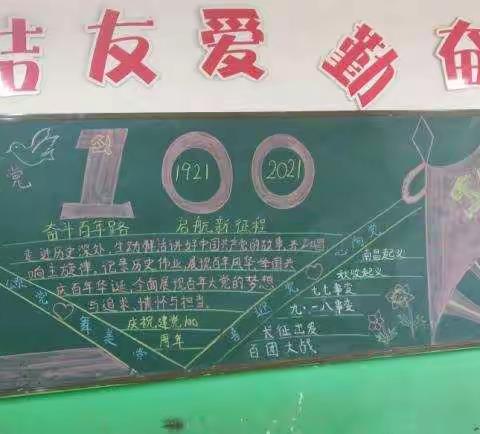 结友爱勤奋
党
100
1921
2021
奋斗百年路 启航新征程
走进历史深处，生动鲜活讲好中国共产党的故事，共唱
响主旋律，记录历史伟业，展现百年风华，全国共
庆百年华诞，全面展现百年大党的梦想
与追求、情怀与担当。
庆祝建党100
周年
心向党
南昌起义
秋收起义
七七事变
九·一八事变
长征出发
百团大战